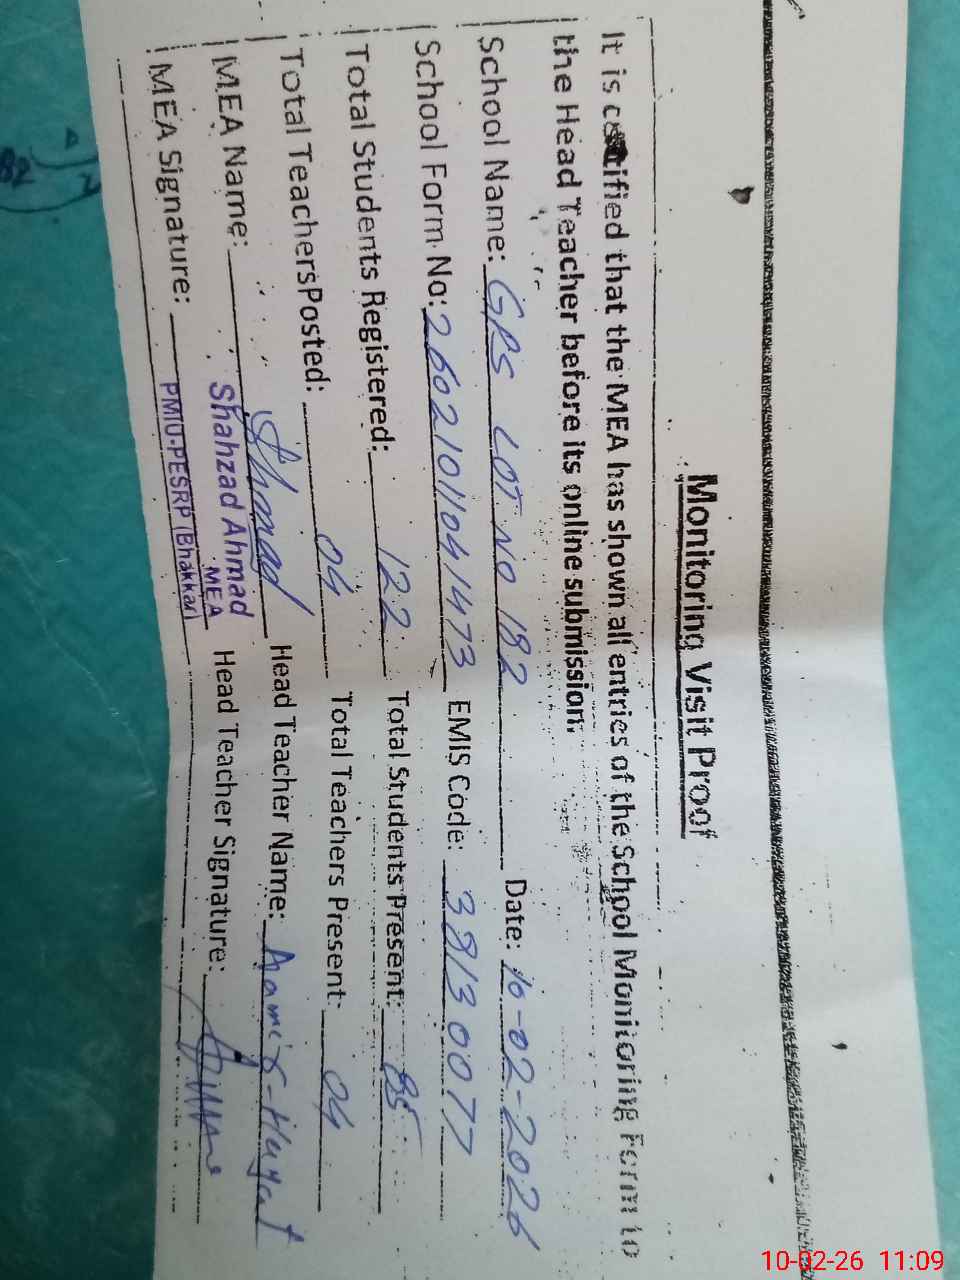 Monitoring Visit Proof
It is certified that the MEA has shown all entries of the School Monitoring Form to
the Head Teacher before its online submission.
School Name: GPS LOT NO 182 Date: 10-02-2026
School Form No: 2602101104 1473 EMIS Code: 38130077
Total Students Registered: 122 Total Students Present: 85
Total TeachersPosted: 04 Total Teachers Present: 04
MEA Name: Ahmad Head Teacher Name:
Shahzad Ahmad
MEA
MEA Signature: PMIU-PESRP (Bhakkar) Head Teacher Signature:
182
10-02-26 11:09